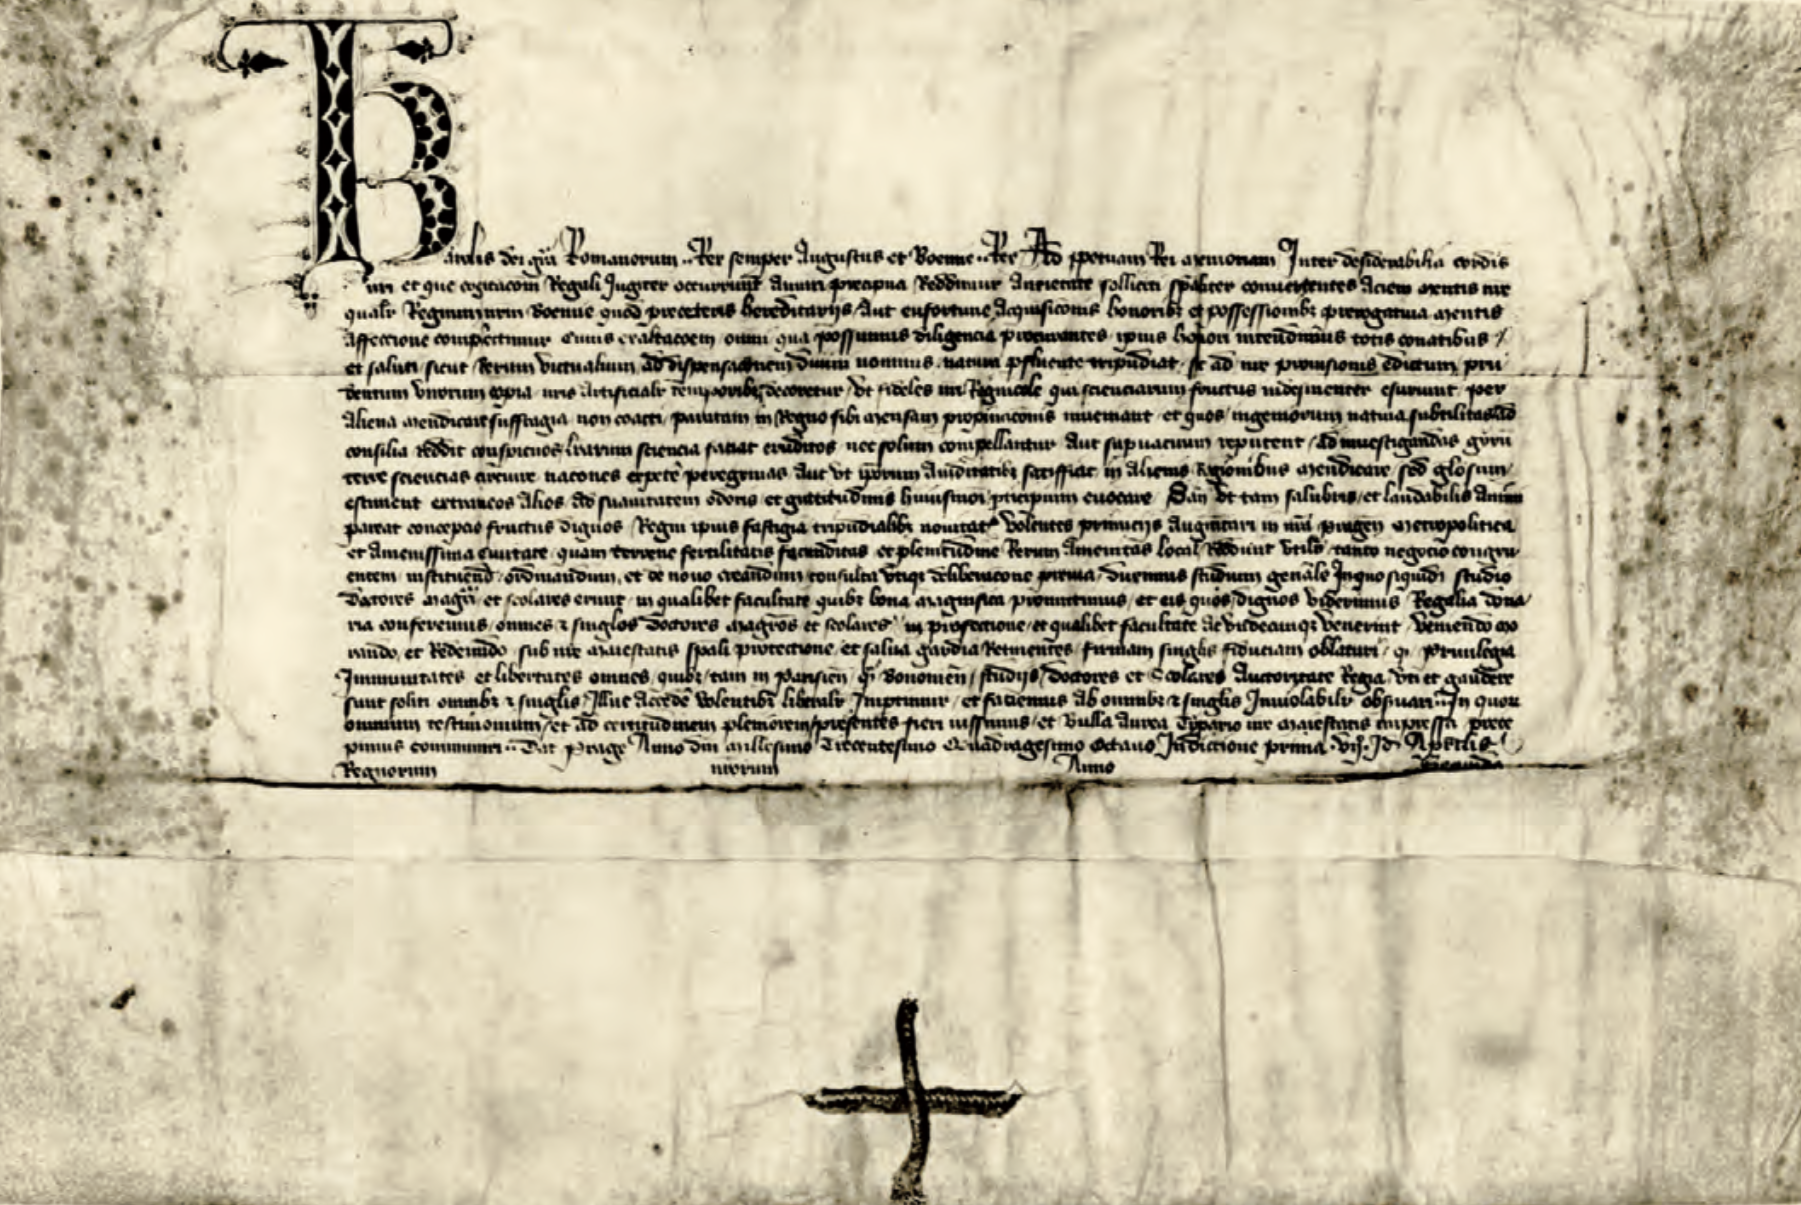 Karolus dei gra Romanorum Rex semper Augustus et Boemie Rex Ad ppetuam Rei memoriam Inter desiderabilia cordis
nri et que cogitacom Regali Jugiter occurrunt Animi precipua Redditur Anxietate solliciti spaliter convertentes Aciem mentis nre
qualr Regnum nrm Boemie quod preceteris hereditariis Aut enfortune Acquisiconis honoribz et possessionibz prerogatiua mentis
Affeccione complectimur Cuius exaltacoem omni qua possumus diligencia procurantes ipius honori intendimus totis conatibus
et saluti sicut Rerum victualium ad dispensacionem diuini nominis natura pfluente tripudiat sic ad nre prouisionis edictum pru
dentum virorum copia nris Artificialr temporibz decoretur vt fideles nri Regnicole qui scienciarum fructus indesinenter esuriunt per
Aliena mendicare suffragia non coacti paratam in Regno sibi mensam propinaconis inueniant et quos ingeniorum natiua subtilitas ad
consilia reddit conspicuos lrarum sciencia faciat eruditos nec solum compellantur Aut supuacuum reputent Ad inuestigandas gyrum
terre sciencias circuire nacones expetere peregrinas Aut vt iporum Auiditatibz satisfiat in Alienis Regionibus mendicare sed gloriosum
estiment extraneos Alios ad suauitatem odoris et gratitudinis huiusmoi pticipium euocare Sane vt tam salubris et laudabilis Animi
pariat concepcio fructus dignos Regni ipius fastigia tripudialibz nouitatum volentes primiciis Augmentari in nra Pragen Metropolitica
et Amenissima Ciuitate quam terrene fertilitatis fecunditas et plenitudine Rerum Amenitas local reddunt vtilr tanto negocio congru
entem instituend ordinandum et de nouo creandum consulta vtiqz deliberacone preuia duximus studium genale Inquo siquidem studio
doctores magri et scolares erunt in qualibet facultate quibz bona magnifica promittimus et eis quos dignos viderimus Regalia dona
ria conferemus omnes z singlos doctores magros et scolares in profeccione et qualibet facultate Ac vndecunqz venerint veniendo mo
rando et Redeundo sub nre maiestatis spali proteccione et salua gardia Retinentes firmam singlis fiduciam oblaturi qd Priuilegia
Immunitates et libertates omnes quibz tam in Parisien qm Bononien studiis doctores et Scolares Auctoritate Regia vti et gaudere
sunt soliti omnibz z singlis Illuc Accede volentibz liberalr Imptimur et faciemus Ab omnibz z singlis Inuiolabilr obsuari In quorum
omnium testimonium et ad certitudinem pleniorem presentes fieri iussimus et Bulla Aurea Typario nre maiestatis impressa prece
pimus communiri Dat Prage Anno dni Millesimo Trecentesimo Quadragesimo Octauo Indiccione prima vij Id Aprilis
Regnorum nrorum Anno Secundo